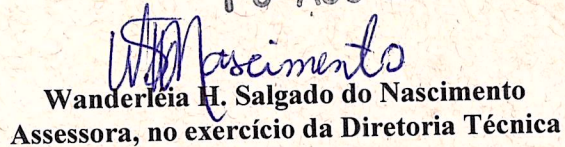 WHSNascimento
Wanderléia H. Salgado do Nascimento
Assessora, no exercício da Diretoria Técnica